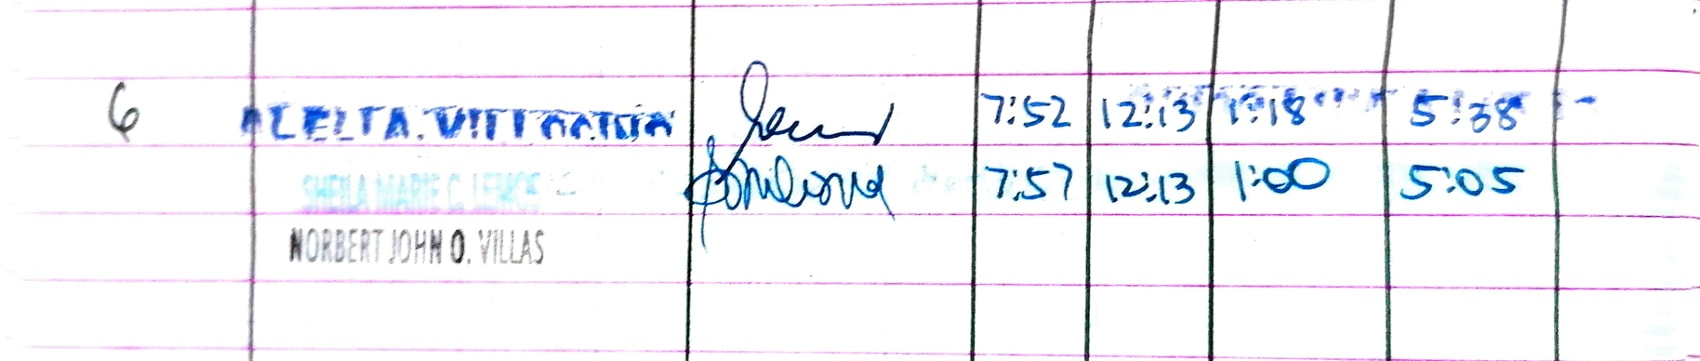 6 7:52 12:13 1:18 5:38
SHEILA MARIE C. LEMOS 7:57 12:13 1:00 5:05
NORBERT JOHN O. VILLAS